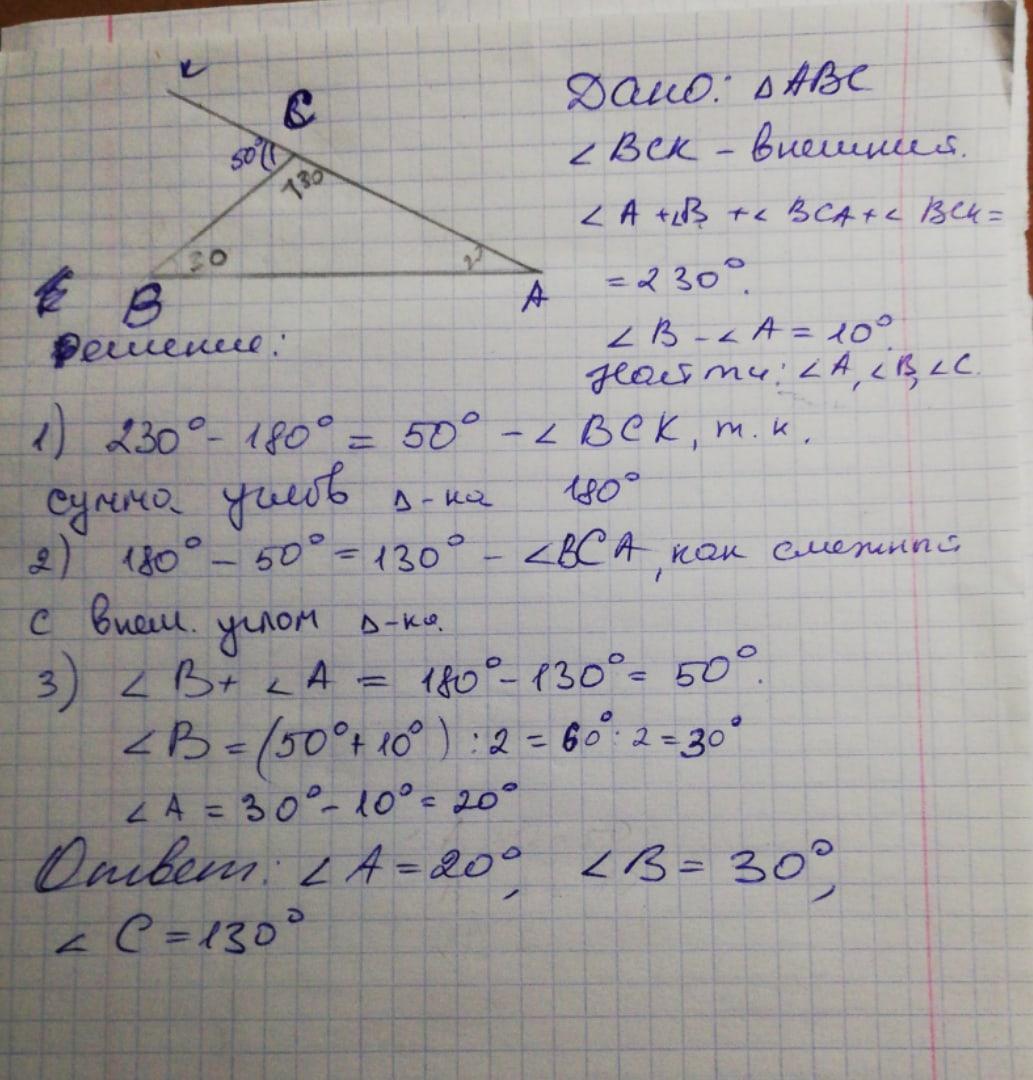 К
С
50°
130
30
2
B
A
Дано: △ABC
∠BCK - внешний.
∠A+∠B+∠BCA+∠BCK=
=230°.
∠B-∠A=10°.
Найти: ∠A,∠B,∠C.
Решение:
1) 230°-180°=50° - ∠BCK, т.к.
сумма углов △-ка 180°
2) 180°-50°=130° - ∠BCA, как смежный
с внеш. углом △-ка.
3) ∠B+∠A=180°-130°=50°.
∠B=(50°+10°):2=60°:2=30°
∠A=30°-10°=20°
Ответ: ∠A=20°, ∠B=30°,
∠C=130°